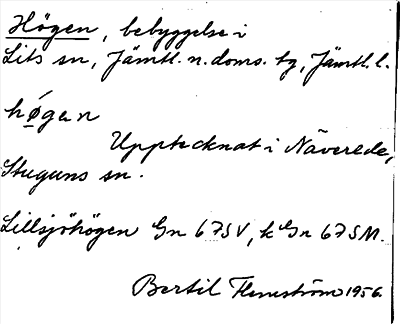 Högen, bebyggelse i
Lits sn, Jämtl. n. doms. tg, Jämtl. l.
hǿgen
Upptecknat i Näverede,
Stuguns sn.
Lillsjöhögen Gn 67SV, k Gn 67SM.
Bertil Flemström 1956.